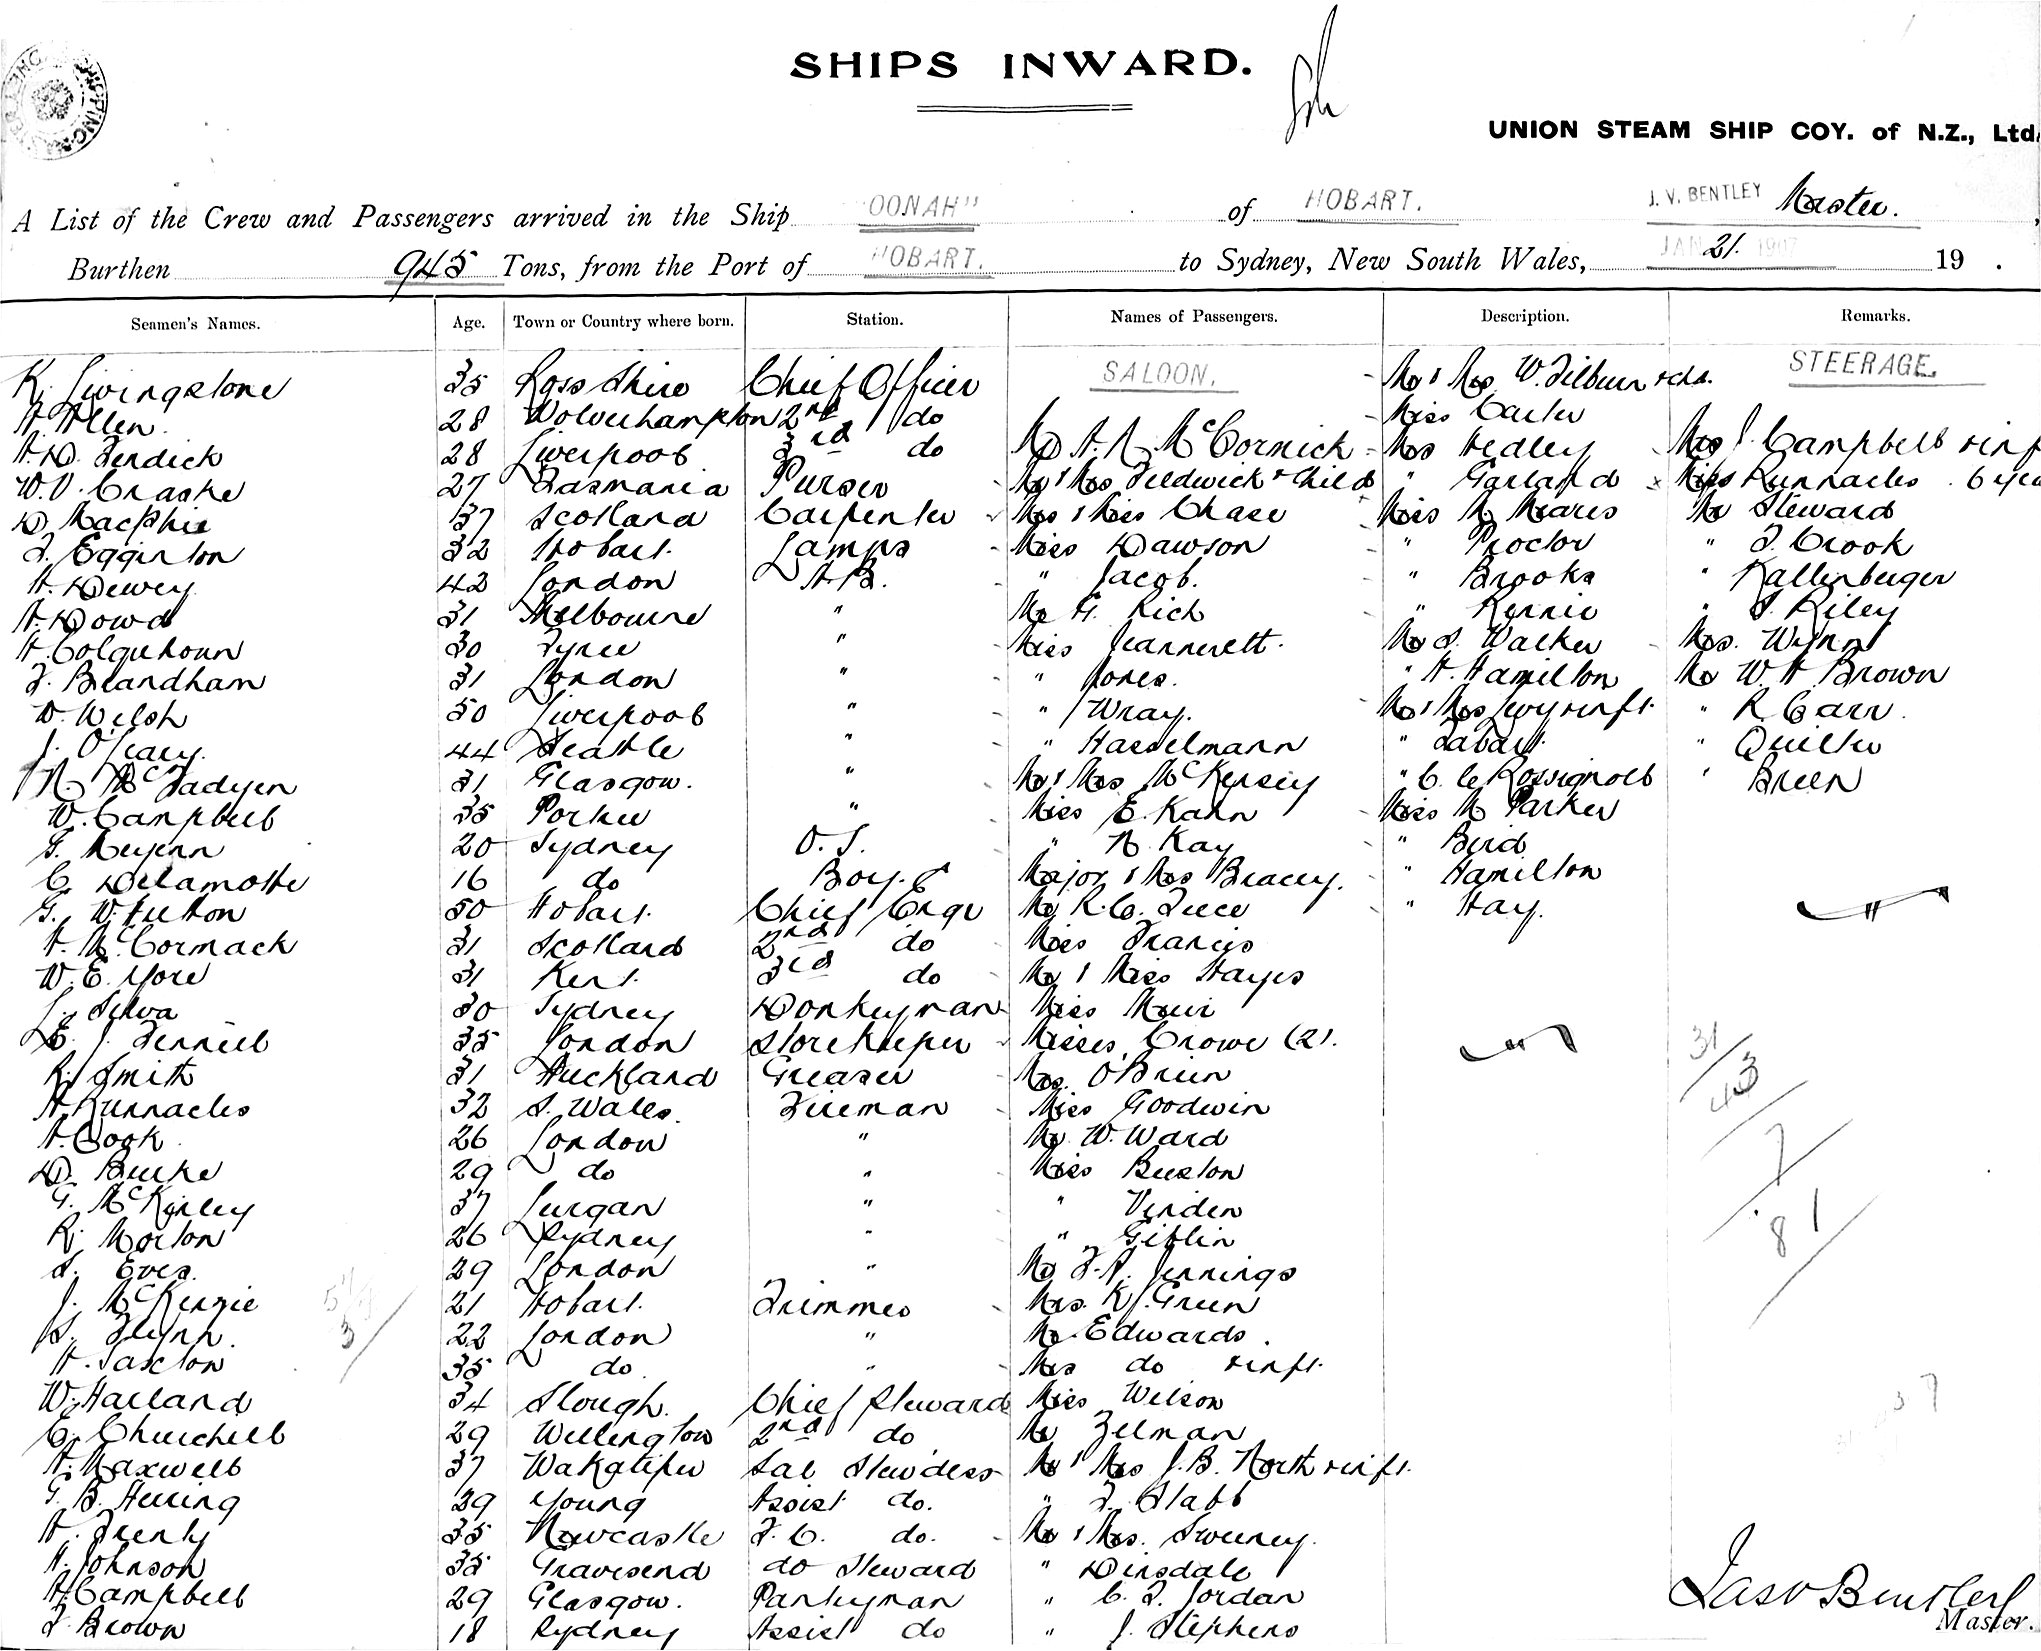 SHIPS INWARD.
UNION STEAM SHIP COY. of N.Z., Ltd.
A List of the Crew and Passengers arrived in the Ship "OONAH" of HOBART. J. V. BENTLEY Master.
Burthen 945 Tons, from the Port of HOBART. to Sydney, New South Wales, JAN 21. 1907 19 .
Seamen's Names. Age. Town or Country where born. Station. Names of Passengers. Description. Remarks.
K. Livingstone 35 Ross Shire Chief Officer SALOON. Mr & Mrs W. Tilburn & chd. STEERAGE.
A. Allen. 28 Wolverhampton 2nd do Miss Carter
A. D. Fendick 28 Liverpool 3rd do Mr A. N. McCormick Mrs Hedley Mrs J. Campbell & inf
W. V. Craske 27 Tasmania Purser Mr & Mrs Feldwick & Child " Garland Miss Runnacles . 6 yea
D. MacPhie 37 Scotland Carpenter Mrs & Miss Chase Miss M. Meares Mr Steward
F. Egginton 32 Hobart. Lamps Miss Dawson " Proctor " F. Crook
A. Dewey 42 London A.B. " Jacob. " Brooks " Kallenberger
A. Dowd 31 Melbourne " Mr G. Rich " Rennie " S. Riley
A. Colquhoun 30 Tyree " Miss Jeannerett. Mr S. Walker Mrs. Wynn
F. Blandham 31 London " " Jones. " A. Hamilton Mr W. A Brown
W. Welsh 50 Liverpool " " Wray. Mr & Mrs Levy & inft. " R Carr.
J. O'Leary. 44 Seattle " " Hasselmann " Tabart. " Quilter
N. McFadyen 31 Glasgow. " Mr & Mrs McKersey " C. le Rossignoll " Breen
W. Campbell 35 Porkee " Miss E. Kahn Miss M Parker
G. Meyenn 20 Sydney O.S. " N. Kay " Bird
C. Delamotte 16 do Boy. Major & Mrs Bracey. " Hamilton
G. W. Fulton 50 Hobart. Chief Engr Mr R. C. Teece " Hay.
A. McCormack 31 Scotland 2nd do Miss Francis
W. E. Yore 31 Kent. 3rd do Mr & Miss Hayes
L. Silva 30 Sydney Donkeyman Miss Muir
E. J. Fennell 35 London Storekeeper Misses Crowe (2).
R. Smith 31 Auckland Greaser Mrs. O'Brien 31
A. Runnacles 32 S. Wales. Fireman Miss Goodwin 43
A. Cook 26 London " Mr W. Ward
D. Burke 29 do " Miss Buxton 7
G. McKinley 37 Lurgan " " Verden
R. Morton 26 Sydney " " Giblin 81
S. Eves. 29 London " Mr F. A. Jennings
J. McKenzie 21 Hobart. Trimmer Mrs. K. J. Green
S. Flynn. 22 London " Mr Edwards.
A. Saxton 35 do " Mrs do & inft.
W. Harland 34 Slough. Chief Steward Miss Wilson 37
C. Churchill 29 Wellington 2nd do Mr Zelman
A. Maxwell 37 Wakatipu Sal Stewdess Mr & Mrs J. B. North & inft.
G. B. Herring 29 Young Assist do. " F. Stabb
A. Trenly 35 Newcastle F. C. do. Mr & Mrs. Sweeney.
A. Johnson 32 Gravesend do Steward " Dinsdale
A. Campbell 29 Glasgow. Pantryman " C. F. Jordan
F. Brown 18 Sydney Assist do " J. Stephens
Jas V Bentley
Master.